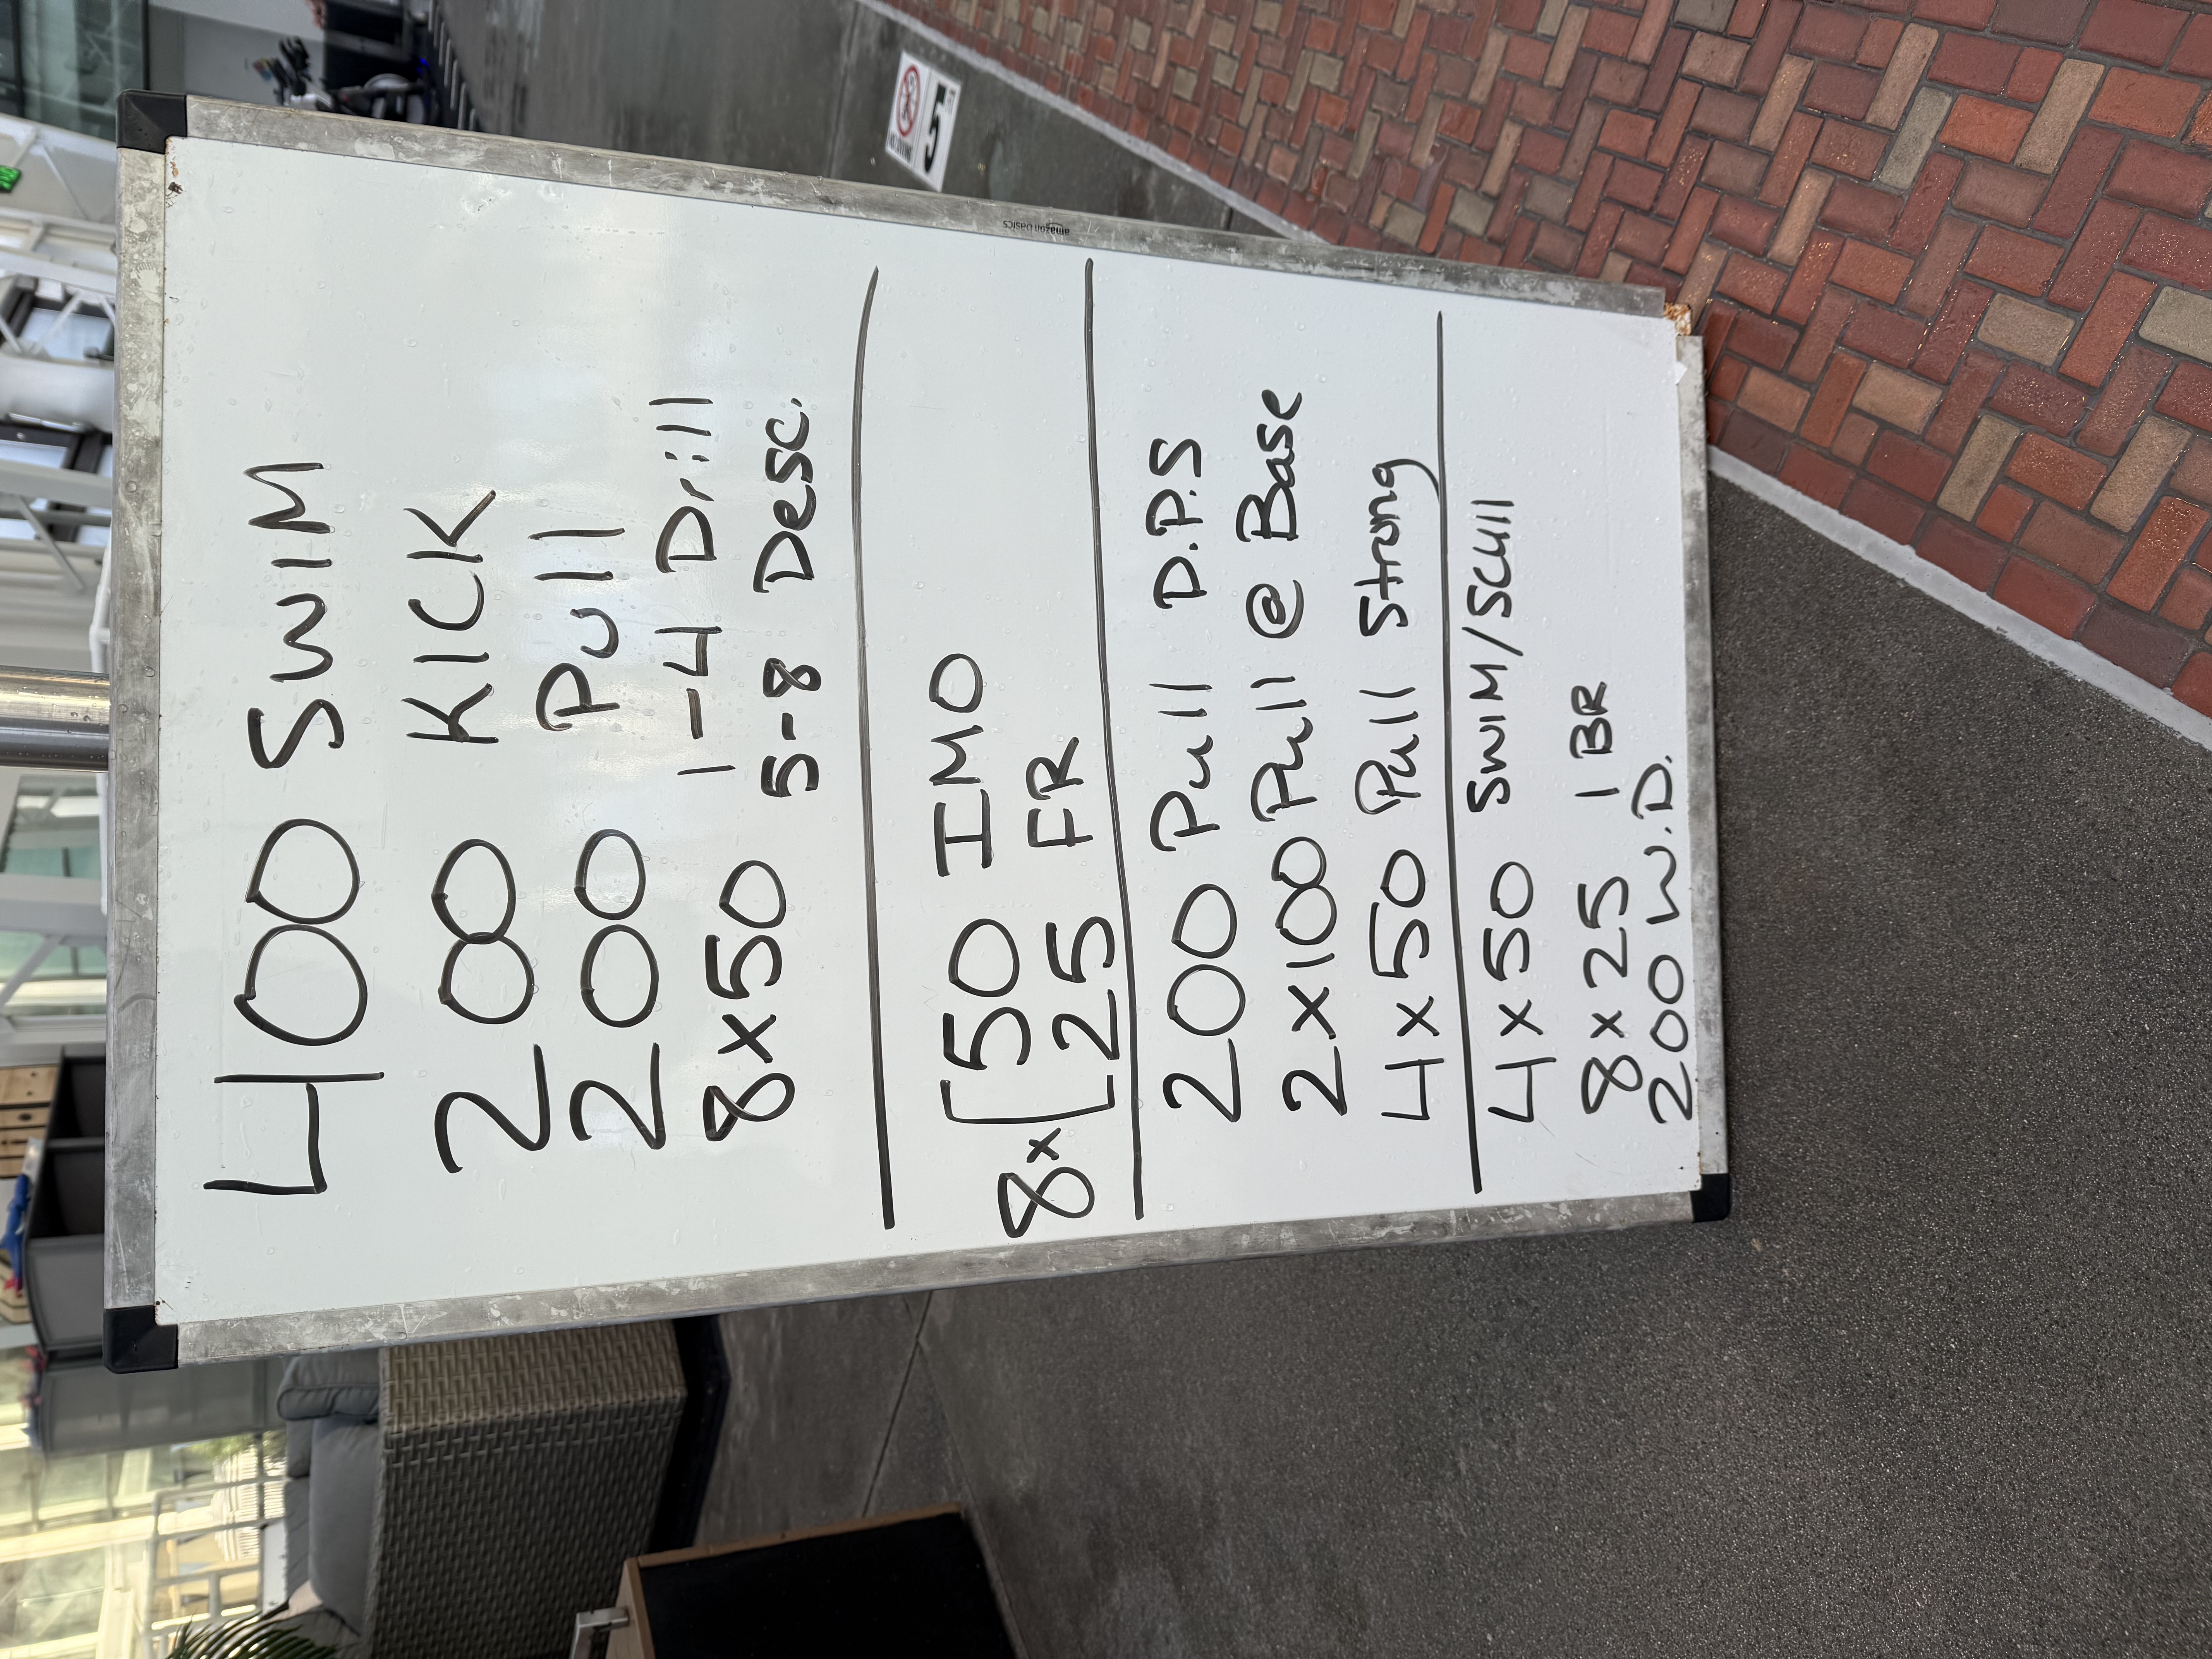 400 SWIM
200 KICK
200 Pull
8x50 1-4 Drill
5-8 Desc.
8x[50 IMO
25 FR
200 Pull D.P.S
2x100 Pull @ Base
4x50 Pull Strong
4x50 SWIM/SCUll
8x25 1 BR
200 W.D.
amazon basics
NO DIVING
5 FT